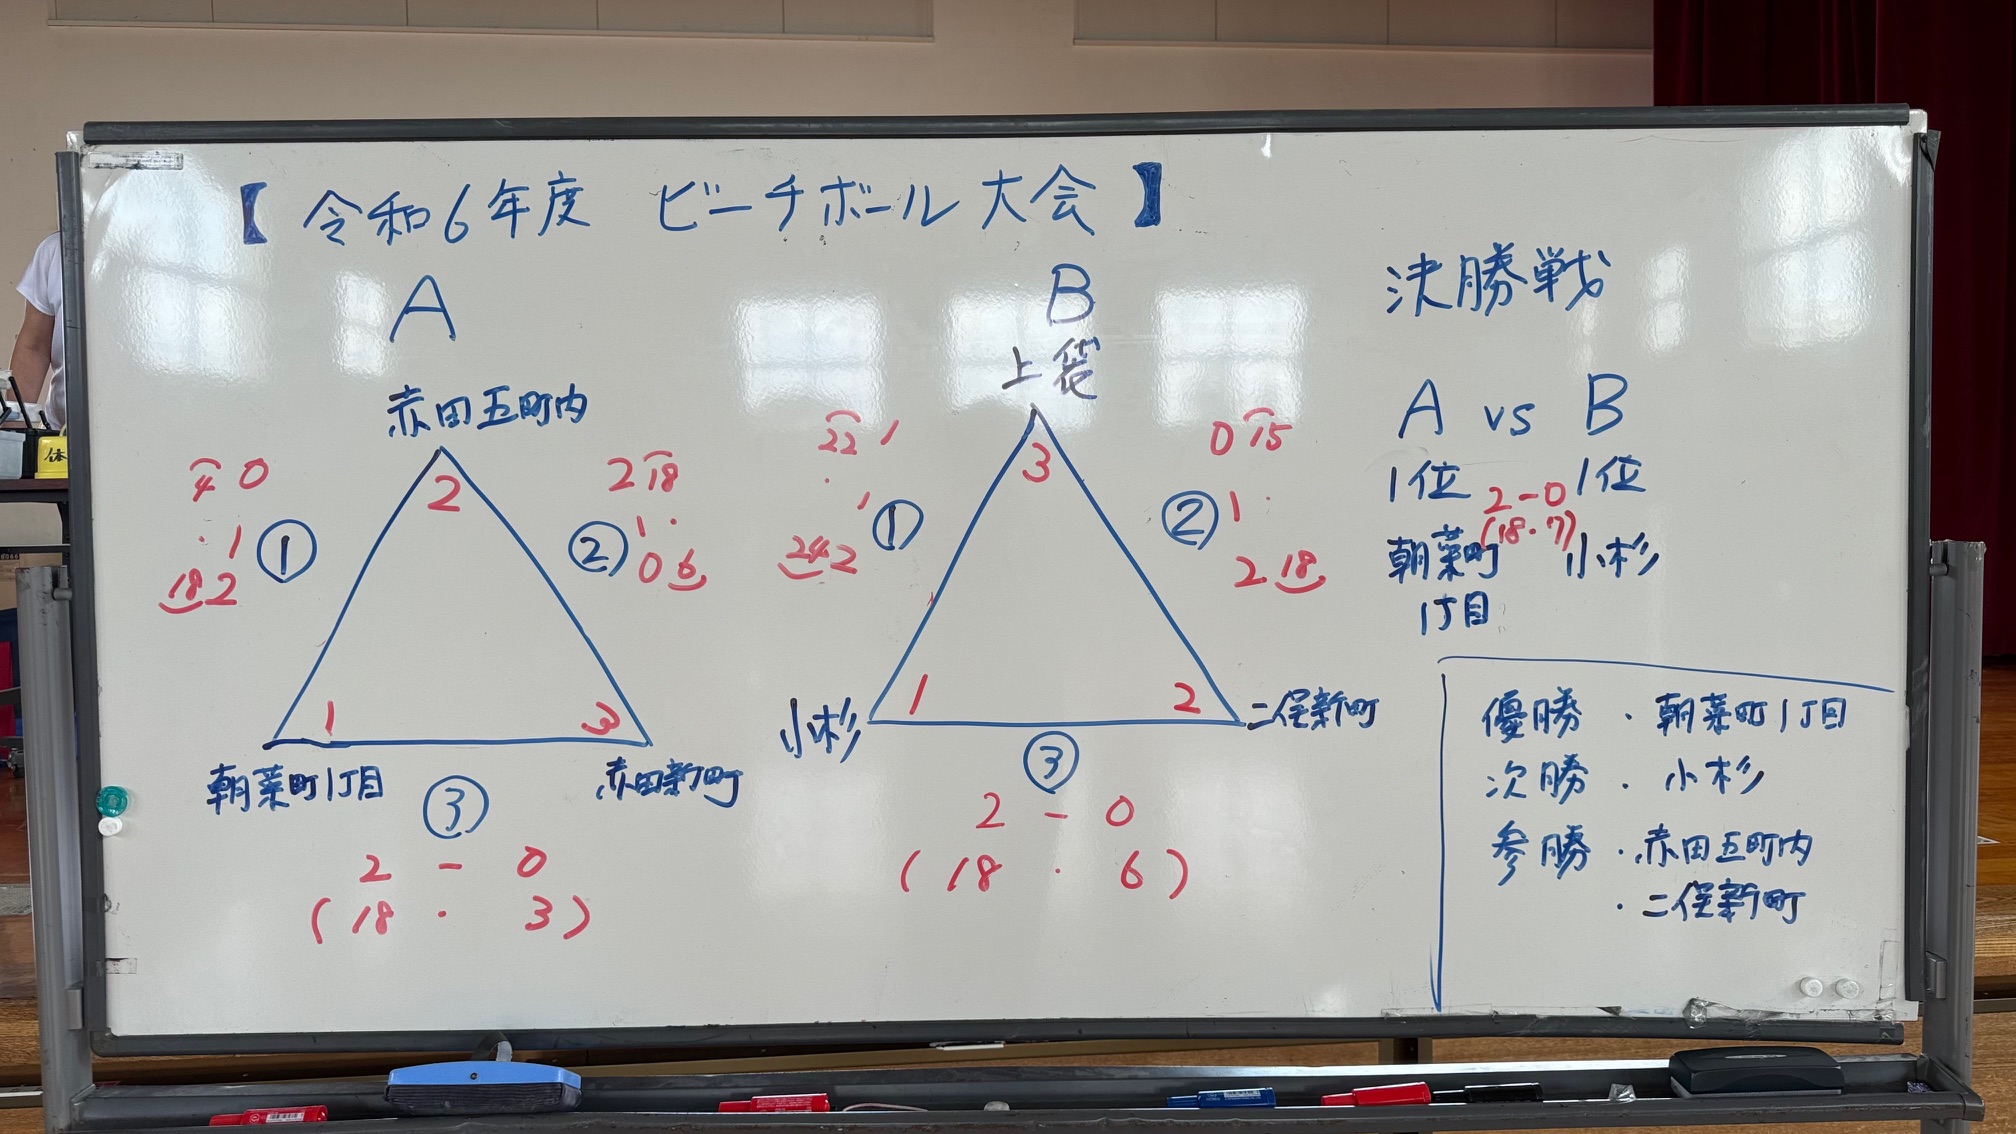 【令和6年度 ビーチボール大会】
A
赤田五町内
4 0
① 1
18 2
2
2 18
② 1
0 6
1
3
朝菜町1丁目
③
赤田新町
2 - 0
(18 · 3)
B
上袋
22 1
① 1
24 2
3
0 15
② 1
2 18
1
2
小杉
二俣新町
③
2 - 0
(18 · 6)
決勝戦
A vs B
1位 2-0 1位
(18·7)
朝菜町 小杉
1丁目
優勝 · 朝菜町1丁目
次勝 · 小杉
参勝 · 赤田五町内
· 二俣新町
体